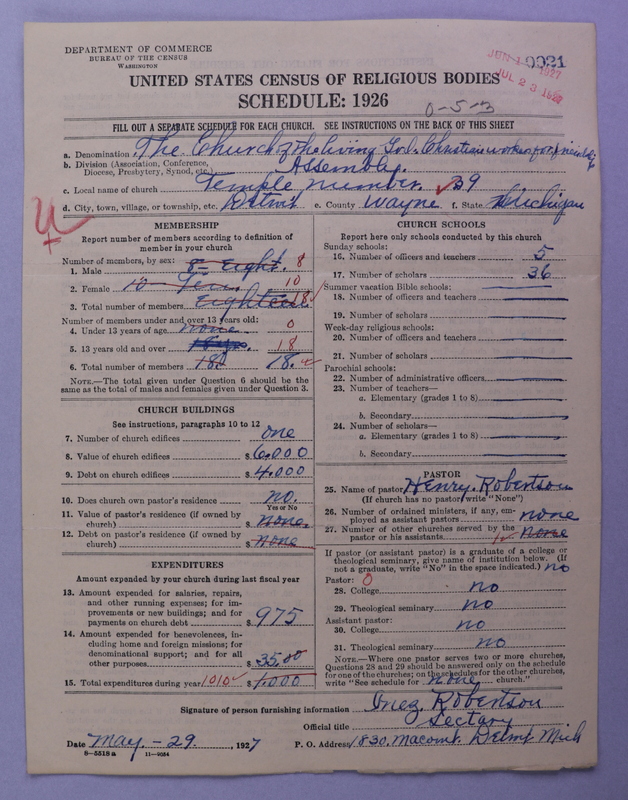 DEPARTMENT OF COMMERCE
BUREAU OF THE CENSUS
WASHINGTON
JUN 1 1927
0921
JUL 23 1927
UNITED STATES CENSUS OF RELIGIOUS BODIES
SCHEDULE: 1926
0-5-3
FILL OUT A SEPARATE SCHEDULE FOR EACH CHURCH. SEE INSTRUCTIONS ON THE BACK OF THIS SHEET
a. Denomination The Church of the living God. Christian workers for friendship
b. Division (Association, Conference, Diocese, Presbytery, Synod, etc.) Assembly.
c. Local name of church Temple number 39
d. City, town, village, or township, etc. Detroit e. County Wayne f. State Michigan
MEMBERSHIP
Report number of members according to definition of member in your church
Number of members, by sex:
1. Male 8 = Eight. 8
2. Female 10 - Ten 10
3. Total number of members Eighteen 18
Number of members under and over 13 years old:
4. Under 13 years of age none 0
5. 13 years old and over 18
6. Total number of members 18 18.
NOTE.—The total given under Question 6 should be the same as the total of males and females given under Question 3.
CHURCH BUILDINGS
See instructions, paragraphs 10 to 12
7. Number of church edifices one
8. Value of church edifices $ 6,000
9. Debt on church edifices $ 4,000
10. Does church own pastor's residence no.
Yes or No
11. Value of pastor's residence (if owned by church) $ none.
12. Debt on pastor's residence (if owned by church) $ none
EXPENDITURES
Amount expended by your church during last fiscal year
13. Amount expended for salaries, repairs, and other running expenses; for improvements or new buildings; and for payments on church debt $ 975
14. Amount expended for benevolences, including home and foreign missions; for denominational support; and for all other purposes $ 35.00
15. Total expenditures during year 1010 $ 1,000
CHURCH SCHOOLS
Report here only schools conducted by this church
Sunday schools:
16. Number of officers and teachers 5
17. Number of scholars 36
Summer vacation Bible schools:
18. Number of officers and teachers
19. Number of scholars
Week-day religious schools:
20. Number of officers and teachers
21. Number of scholars
Parochial schools:
22. Number of administrative officers
23. Number of teachers—
a. Elementary (grades 1 to 8)
b. Secondary
24. Number of scholars—
a. Elementary (grades 1 to 8)
b. Secondary
PASTOR
25. Name of pastor Henry. Robertson
(If church has no pastor write "None")
26. Number of ordained ministers, if any, employed as assistant pastors none
27. Number of other churches served by the pastor or his assistants none
If pastor (or assistant pastor) is a graduate of a college or theological seminary, give name of institution below. (If not a graduate, write "No" in the space indicated.) no
Pastor: 0
28. College no
29. Theological seminary no
Assistant pastor:
30. College no
31. Theological seminary no
NOTE.—Where one pastor serves two or more churches, Questions 28 and 29 should be answered only on the schedule for one of the churches; on the schedules for the other churches, write "See schedule for none church."
Signature of person furnishing information Inez. Robertson
Official title Sectary
Date May. - 29. , 1927 P. O. Address 1830. Macomb. Detroit Mich
8-5518 a 11-9054